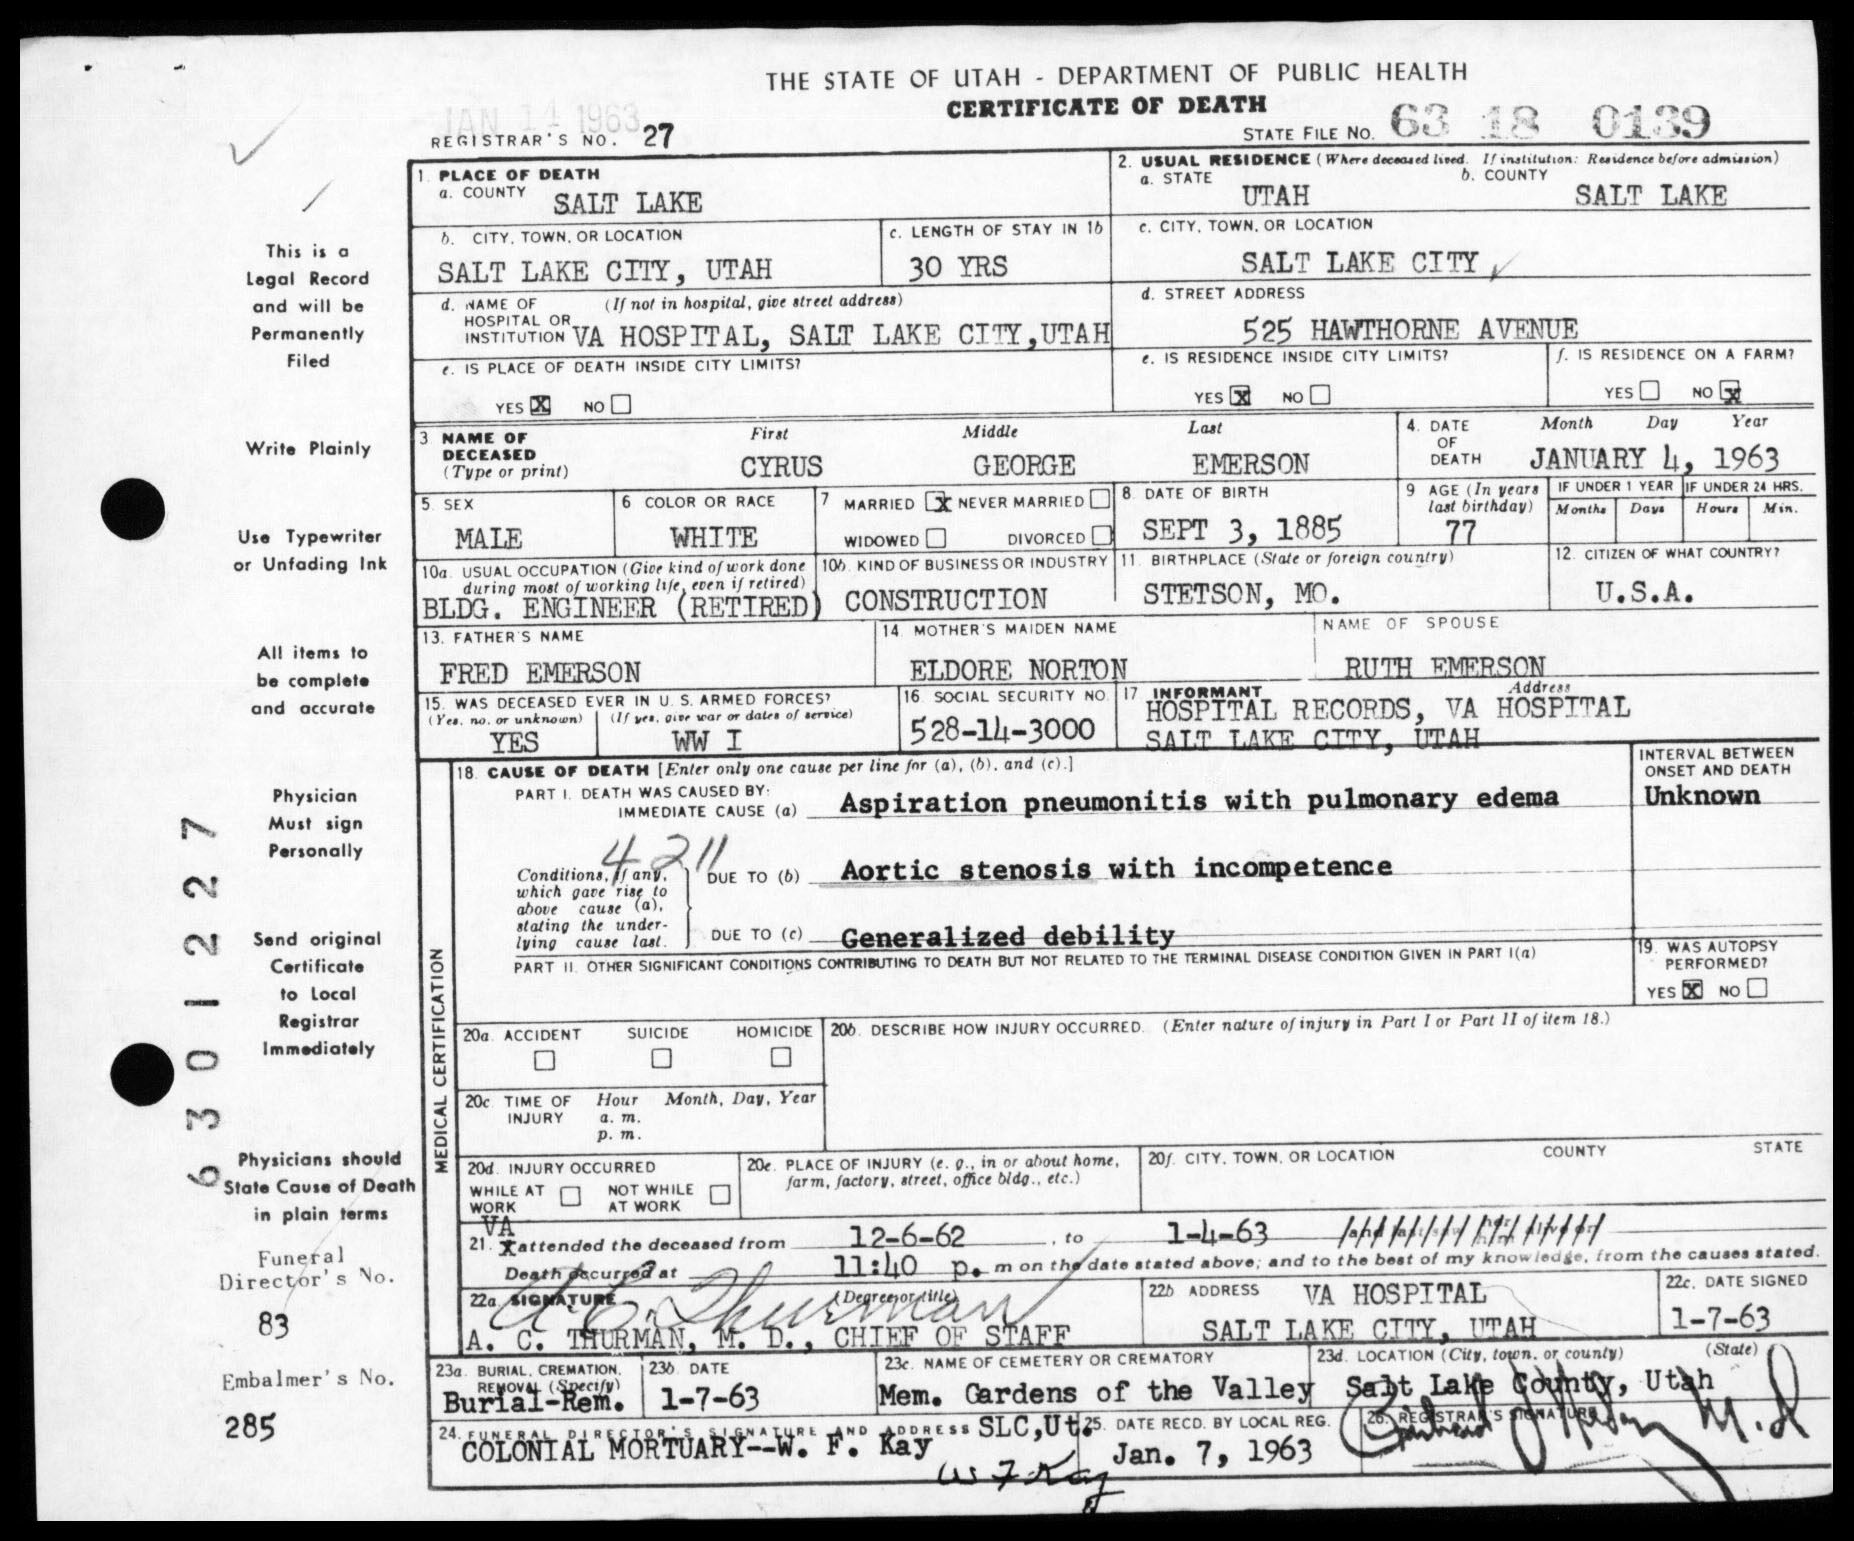 THE STATE OF UTAH - DEPARTMENT OF PUBLIC HEALTH
CERTIFICATE OF DEATH
JAN 14 1963
REGISTRAR'S NO. 27
STATE FILE NO. 63 18 0139
1. PLACE OF DEATH
a. COUNTY SALT LAKE
2. USUAL RESIDENCE (Where deceased lived. If institution: Residence before admission)
a. STATE UTAH b. COUNTY SALT LAKE
b. CITY, TOWN, OR LOCATION SALT LAKE CITY, UTAH
c. LENGTH OF STAY IN 1b 30 YRS
c. CITY, TOWN, OR LOCATION SALT LAKE CITY
d. NAME OF HOSPITAL OR INSTITUTION (If not in hospital, give street address) VA HOSPITAL, SALT LAKE CITY, UTAH
d. STREET ADDRESS 525 HAWTHORNE AVENUE
e. IS PLACE OF DEATH INSIDE CITY LIMITS?
YES X NO
e. IS RESIDENCE INSIDE CITY LIMITS?
YES X NO
f. IS RESIDENCE ON A FARM?
YES NO X
3 NAME OF DECEASED (Type or print)
First Middle Last
CYRUS GEORGE EMERSON
4. DATE OF DEATH Month Day Year
JANUARY 4, 1963
5. SEX MALE
6 COLOR OR RACE WHITE
7 MARRIED X NEVER MARRIED
WIDOWED DIVORCED
8. DATE OF BIRTH SEPT 3, 1885
9 AGE (In years last birthday) 77
IF UNDER 1 YEAR IF UNDER 24 HRS.
Months Days Hours Min.
10a. USUAL OCCUPATION (Give kind of work done during most of working life, even if retired)
BLDG. ENGINEER (RETIRED)
10b. KIND OF BUSINESS OR INDUSTRY CONSTRUCTION
11. BIRTHPLACE (State or foreign country) STETSON, MO.
12. CITIZEN OF WHAT COUNTRY? U.S.A.
13. FATHER'S NAME FRED EMERSON
14. MOTHER'S MAIDEN NAME ELDORE NORTON
NAME OF SPOUSE RUTH EMERSON
15. WAS DECEASED EVER IN U. S. ARMED FORCES?
(Yes, no, or unknown) (If yes, give war or dates of service)
YES WW I
16. SOCIAL SECURITY NO. 528-14-3000
17 INFORMANT Address
HOSPITAL RECORDS, VA HOSPITAL
SALT LAKE CITY, UTAH
MEDICAL CERTIFICATION
18. CAUSE OF DEATH [Enter only one cause per line for (a), (b), and (c).]
INTERVAL BETWEEN ONSET AND DEATH
PART I. DEATH WAS CAUSED BY:
IMMEDIATE CAUSE (a) Aspiration pneumonitis with pulmonary edema Unknown
4211
Conditions, if any, which gave rise to above cause (a), stating the underlying cause last.
DUE TO (b) Aortic stenosis with incompetence
DUE TO (c) Generalized debility
PART II. OTHER SIGNIFICANT CONDITIONS CONTRIBUTING TO DEATH BUT NOT RELATED TO THE TERMINAL DISEASE CONDITION GIVEN IN PART I(a)
19. WAS AUTOPSY PERFORMED?
YES X NO
20a. ACCIDENT SUICIDE HOMICIDE
20b. DESCRIBE HOW INJURY OCCURRED. (Enter nature of injury in Part I or Part II of item 18.)
20c. TIME OF INJURY Hour Month, Day, Year
a. m.
p. m.
20d. INJURY OCCURRED
WHILE AT WORK NOT WHILE AT WORK
20e. PLACE OF INJURY (e. g., in or about home, farm, factory, street, office bldg., etc.)
20f. CITY, TOWN, OR LOCATION COUNTY STATE
VA
21. X attended the deceased from 12-6-62, to 1-4-63
Death occurred at 11:40 p. m on the date stated above; and to the best of my knowledge, from the causes stated.
22a. SIGNATURE (Degree or title)
A C Thurman
A. C. THURMAN, M. D., CHIEF OF STAFF
22b. ADDRESS VA HOSPITAL
SALT LAKE CITY, UTAH
22c. DATE SIGNED 1-7-63
23a. BURIAL, CREMATION, REMOVAL (Specify) Burial-Rem.
23b. DATE 1-7-63
23c. NAME OF CEMETERY OR CREMATORY Mem. Gardens of the Valley
23d. LOCATION (City, town, or county) (State) Salt Lake County, Utah
24. FUNERAL DIRECTOR'S SIGNATURE AND ADDRESS SLC,Ut.
COLONIAL MORTUARY--W. F. Kay
W F Kay
25. DATE RECD. BY LOCAL REG. Jan. 7, 1963
26. REGISTRAR'S SIGNATURE
M.D
This is a
Legal Record
and will be
Permanently
Filed
Write Plainly
Use Typewriter
or Unfading Ink
All items to
be complete
and accurate
Physician
Must sign
Personally
Send original
Certificate
to Local
Registrar
Immediately
Physicians should
State Cause of Death
in plain terms
Funeral
Director's No.
83
Embalmer's No.
285
6301227